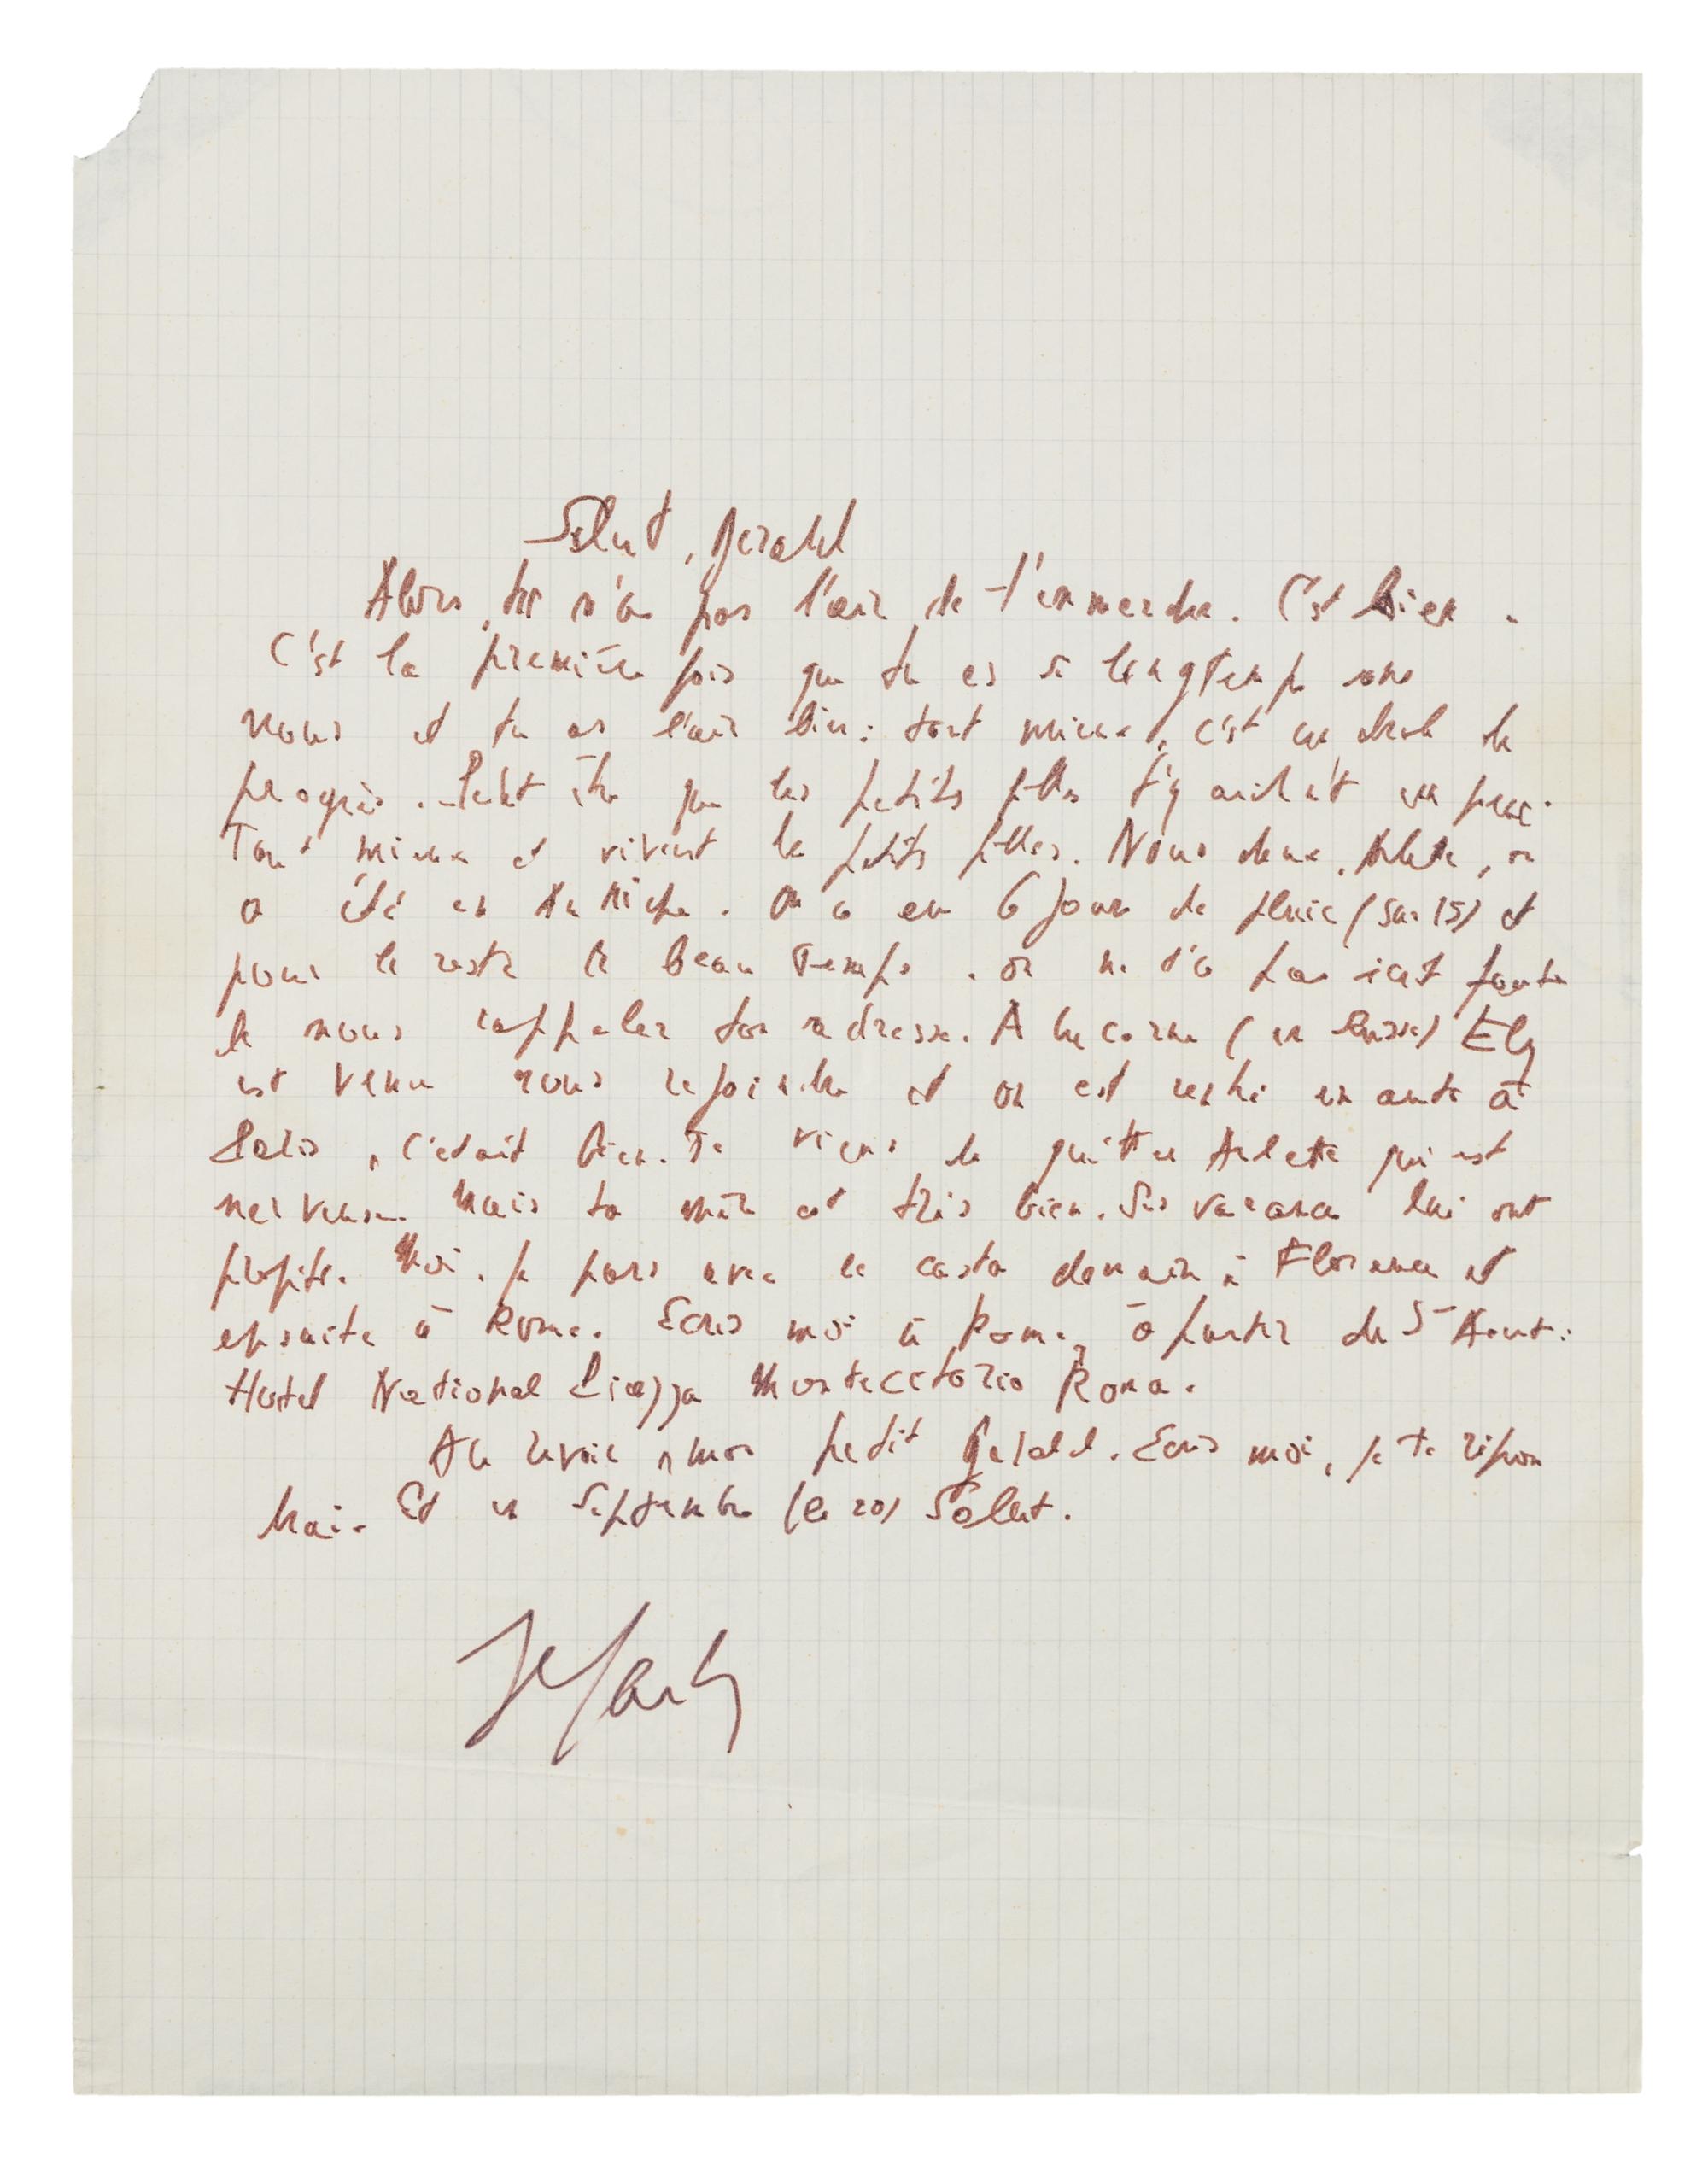 Salut, Gérald
Alors, tu n'as pas l'air de t'emmerder. C'est bien.
C'est la première fois que tu es si longtemps sans
nous et tu as l'air bien: tant mieux, c'est un drole de
progrès. Peut être que les petites filles t'y aident un peu.
Tant mieux et vivent les petites filles. Nous deux, Arlette, on
a été en Autriche. On a eu 6 jours de pluie (sur 15) et
pour le reste le beau temps. on ne t'a pas écrit faute
de nous rappeler ton adresse. A Lucerne (en Suisse) Ely
est venu nous rejoindre et on est rentré en auto à
Paris, c'était bien. Je viens de quitter Arlette qui est
nerveuse. Mais ta mère est très bien. Ses vacances lui ont
profité. Moi, je pars avec le castor demain à Florence et
ensuite à Rome. Ecris moi à Rome, à partir du 5 Aout:
Hotel National Piazza Montecitorio Roma.
Au revoir, mon petit Gérald. Ecris moi, je te répon
drai. Et en Septembre (le 20) Salut.